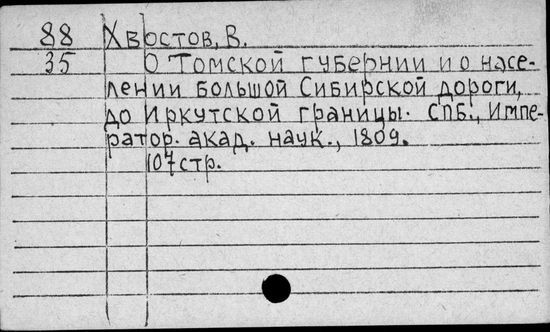 88 Хвостов, В.
35 О Томской губернии и о насе-
лении большой Сибирской дороги,
до Иркутской границы. СПБ., Импе-
ратор. акад. наук., 1809.
107 стр.